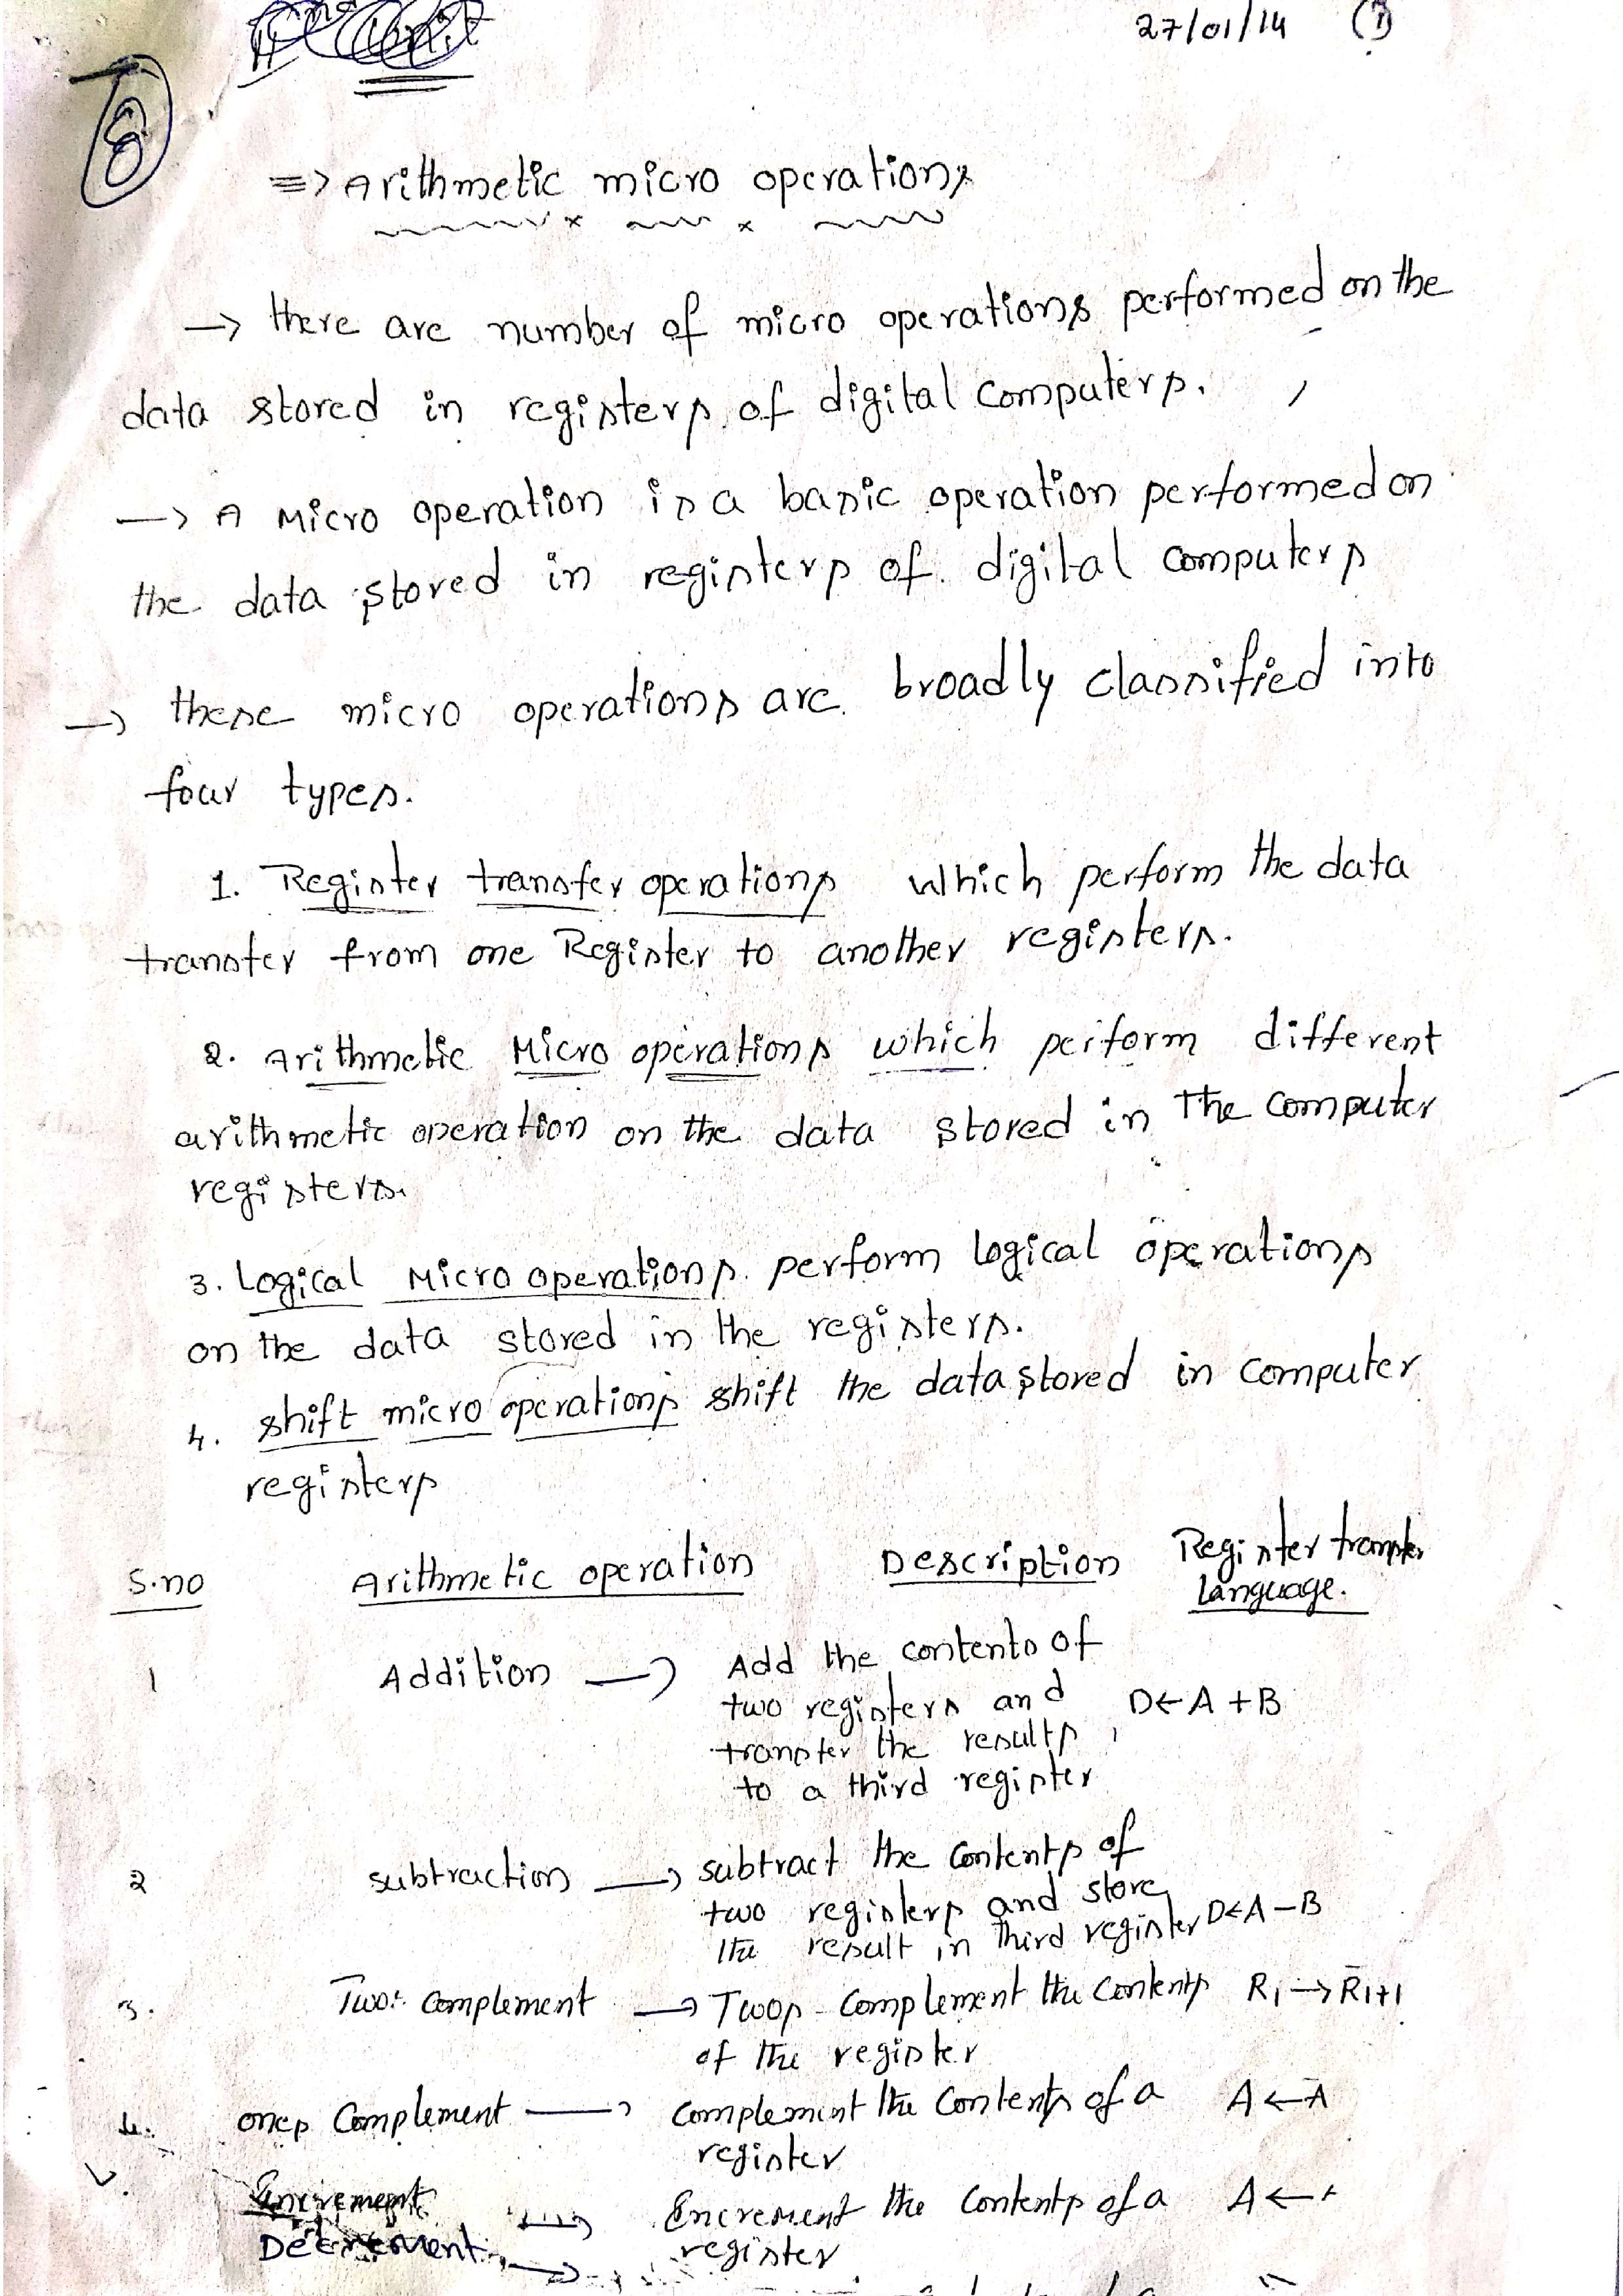 Unit
27/01/14 (1)
6
=> Arithmetic micro operations
-> there are number of micro operations performed on the
data stored in registers of digital computers.
-> A Micro operation is a basic operation performed on
the data stored in registers of digital computers
-> these micro operations are broadly classified into
four types.
1. Register transfer operations which perform the data
transfer from one Register to another registers.
2. Arithmetic Micro operations which perform different
arithmetic operation on the data stored in The computer
registers.
3. Logical Micro operations perform logical operations
on the data stored in the registers.
4. shift micro operations shift the data stored in computer
registers
S.no Arithmetic operation Description Register transfer
language.
1 Addition -> Add the contents of
two registers and D← A + B
transfer the results
to a third register
2 subtraction -> subtract the contents of
two registers and store
the result in third register D←A - B
3. Two's complement -> Twos complement the contents R1 -> R̄1+1
of the register
4. ones complement -> complement the contents of a A ← Ā
register
Encrement -> Encrement the contents of a A ←
Decrement -> register